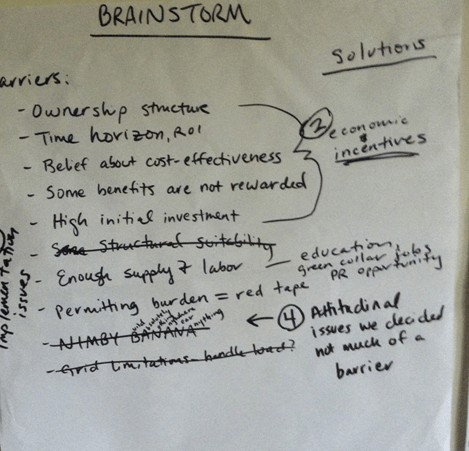 BRAINSTORM
Solutions
arriers:
- Ownership structure
- Time horizon, ROI
- Belief about cost-effectiveness
- Some benefits are not rewarded
- High initial investment
economic
incentives
- Some Structural suitability
- Enough supply & labor
education
green collar jobs
PR opportunity
- Permitting burden = red tape
- NIMBY BANANA
build absolutely nothing anywhere near anything
- Grid limitations - handle load?
← 4 Attitudinal
issues we decided
not much of a
barrier
Implementation
issues